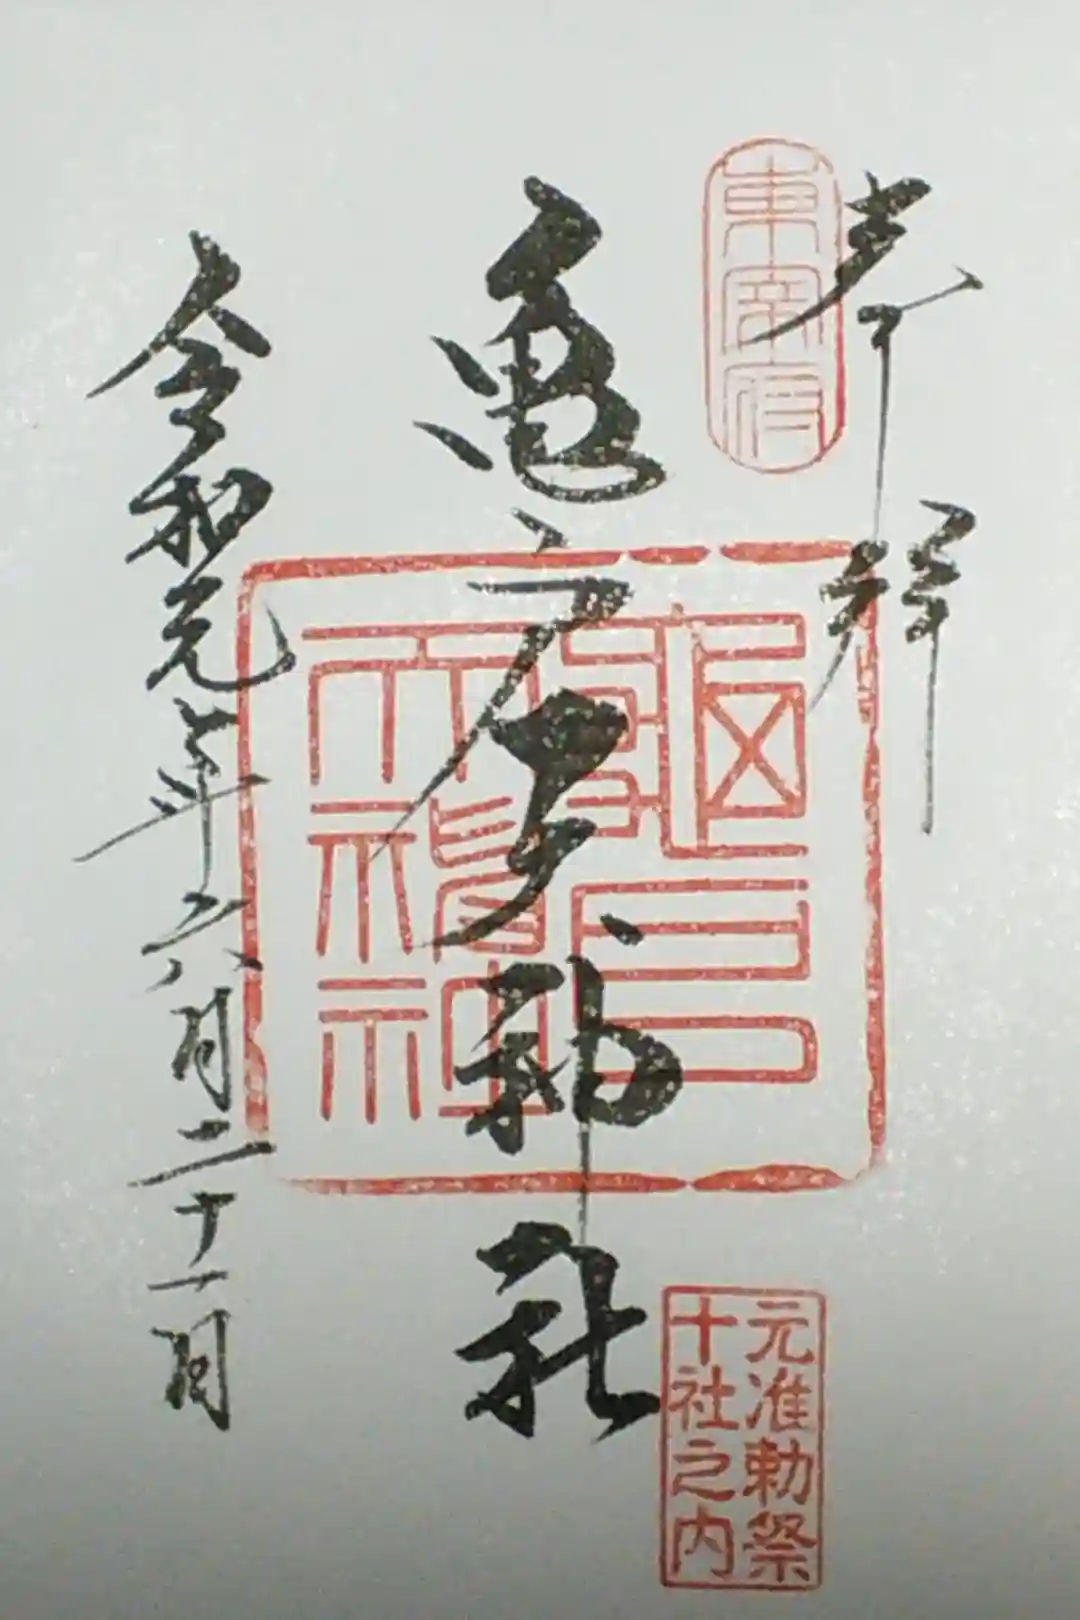 奉拝
東宰府
亀戸天神社
龜戸
天神社
元准勅祭
十社之内
令和元年六月二十一日